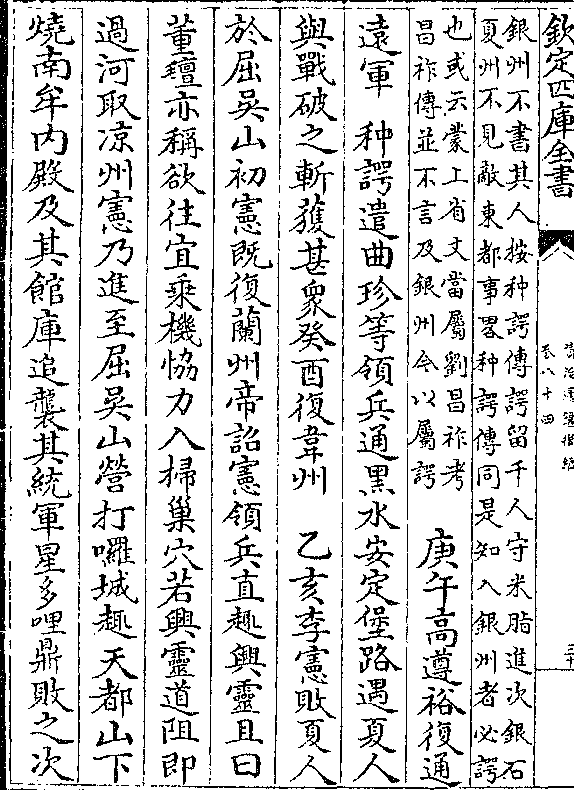 欽定四庫全書
資治通鑑後編
卷八十四
三十
銀州不書其人按种諤傳諤留千人守米脂進次銀石
夏州不見敵東都事畧种諤傳同是知入銀州者必諤
也或云蒙上省文當屬劉昌祚考
昌祚傳並不言及銀州今以屬諤
庚午高遵裕復通
遠軍　种諤遣曲珍等領兵通黑水安定堡路遇夏人
與戰破之斬獲甚衆癸酉復韋州　乙亥李憲敗夏人
於屈吳山初憲既復蘭州帝詔憲領兵直趣興靈且曰
董氊亦稱欲往宜乘機恊力入掃巢穴若興靈道阻即
過河取凉州憲乃進至屈吳山營打囉城趣天都山下
燒南牟内殿及其館庫追襲其統軍星多哩鼎敗之次